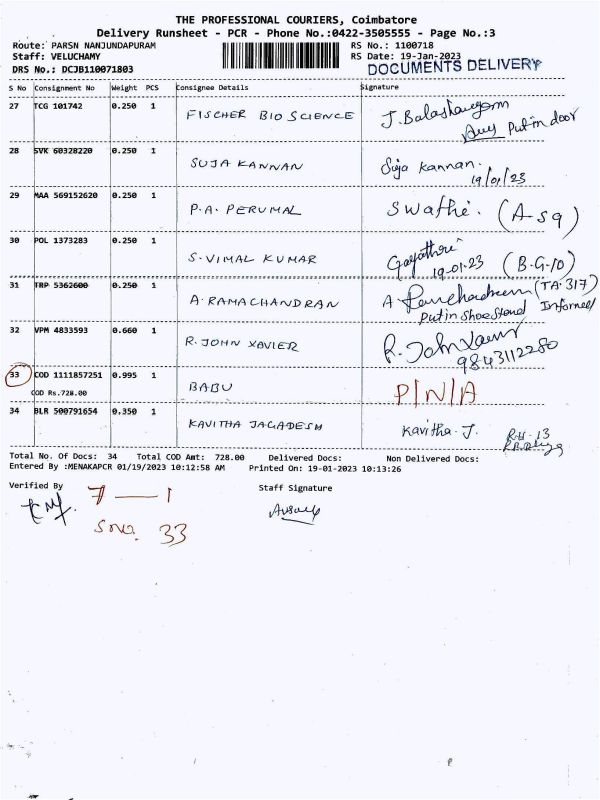 THE PROFESSIONAL COURIERS, Coimbatore
Delivery Runsheet - PCR - Phone No.:0422-3505555 - Page No.:3
Route: PARSN NANJUNDAPURAM RS No.: 1100718
Staff: VELUCHAMY RS Date: 19-Jan-2023
DRS No.: DCJB110071803 DOCUMENTS DELIVERY
S No Consignment No Weight PCS Consignee Details Signature
27 TCG 101742 0.250 1 FISCHER BIO SCIENCE J. Balashanugam
Put in door
28 SVK 60328220 0.250 1 SUJA KANNAN Suja Kannan.
19/01/23
29 MAA 569152620 0.250 1 P.A. PERUMAL Swathi. (A-59)
30 POL 1373283 0.250 1 S. VIMAL KUMAR Gayathri
19.01.23 (B-G-10)
31 TRP 5362600 0.250 1 A. RAMACHANDRAN A (TA-317)
Put in Shoe Stand Informed
32 VPM 4833593 0.660 1 R. JOHN XAVIER R. John Xavier
9843112280
33 COD 1111857251 0.995 1 BABU P/N/A
COD Rs.728.00
34 BLR 500791654 0.350 1 KAVITHA JAGADESH Kavitha. J.
RH-13
Total No. Of Docs: 34 Total COD Amt: 728.00 Delivered Docs: Non Delivered Docs:
Entered By :MENAKAPCR 01/19/2023 10:12:58 AM Printed On: 19-01-2023 10:13:26
Verified By Staff Signature
7 — 1
S no. 33